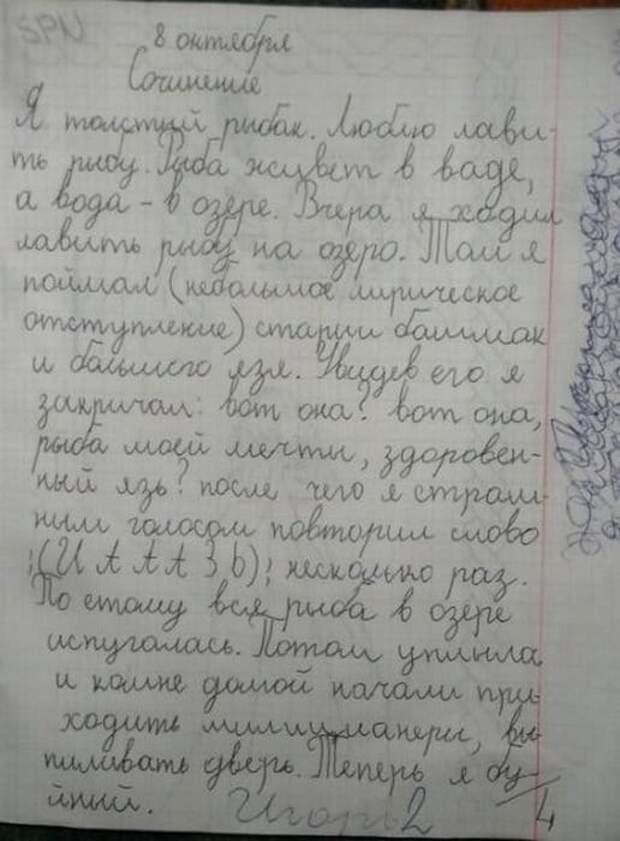 SPN
8 октября
Сочинение
Я толстый рыбак. Люблю лави-
ть рыбу. Рыба живет в ваде,
а вода - в озере. Вчера я ходил
лавить рыбу на озеро. Там я
поймал (небольшое лирическое
отступление) старый башмак
и большего язя. Увидев его я
закричал: вот она? вот она,
рыба моей мечты, здоровен-
ный язь? после чего я страш-
ным голосом повторил слово
¡(ИАААЗЬ)¡ несколько раз.
По етому вся рыба в озере
испугалась. Потом уплыла
и комне домой начали при-
ходить милицианеры, вы-
пиливать дверь. Теперь я бу-
йный. Игорь 2/4